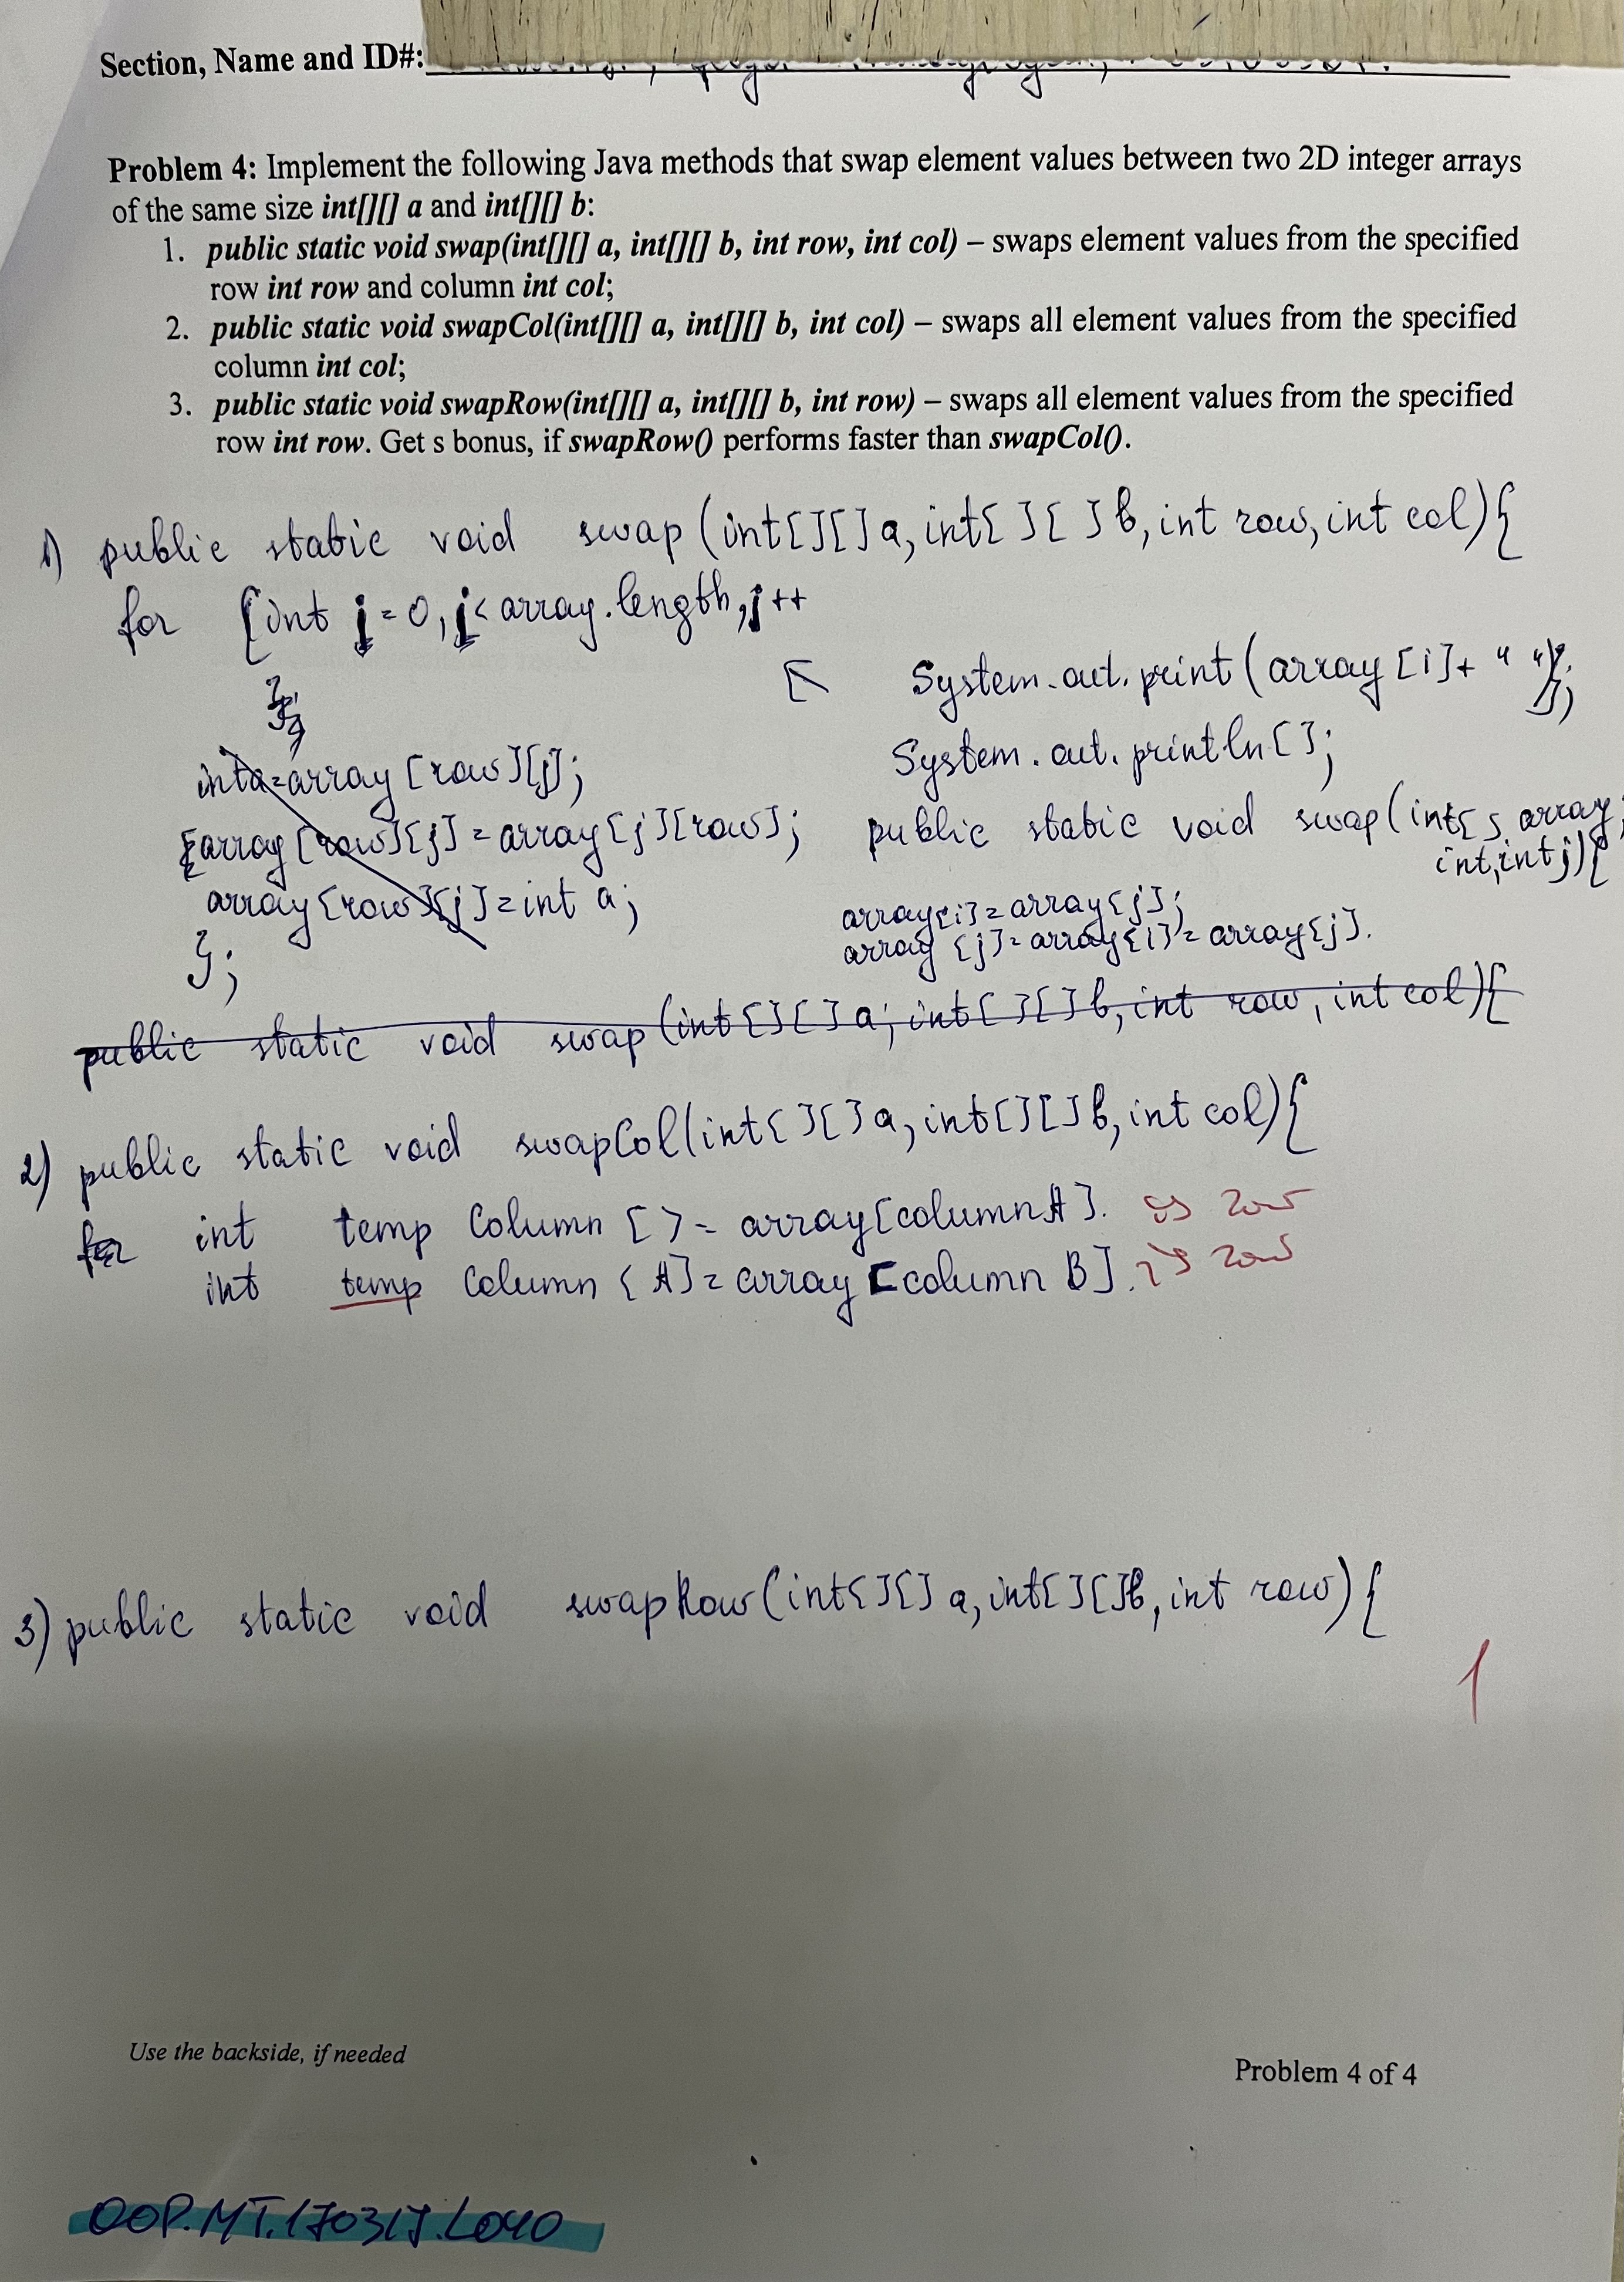 Section, Name and ID#:
Problem 4: Implement the following Java methods that swap element values between two 2D integer arrays
of the same size int[][] a and int[][] b:
1. public static void swap(int[][] a, int[][] b, int row, int col) – swaps element values from the specified
row int row and column int col;
2. public static void swapCol(int[][] a, int[][] b, int col) – swaps all element values from the specified
column int col;
3. public static void swapRow(int[][] a, int[][] b, int row) – swaps all element values from the specified
row int row. Get s bonus, if swapRow() performs faster than swapCol().
1) public static void swap (int[][] a, int[ ][ ] b, int row, int col){
for [int j = 0, j < array.length, j++
System.out.print (array [i] + " ");
System.out.println[ ];
inta=array [row][j];
{array [row][j] = array[j][row];
array[row][j] = int a;
};
public static void swap(int[], array,
int, int j){
array[i] = array[j];
array [j] = array[i] = array[j].
public static void swap (int[][] a; int[][] b, int row, int col){
2) public static void swapCol(int[][] a, int[][] b, int col){
for int temp Column [ ] = array[columnA]. is row
int temp Column {A] = array [column B]. is row
3) public static void swapRow (int[][] a, int[][]b, int row) {
1
Use the backside, if needed
Problem 4 of 4
OOP.MT.170317.L040